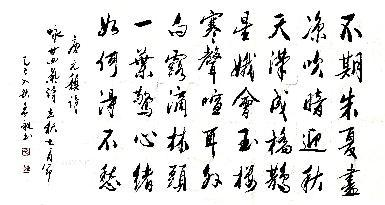 不期朱夏盡
涼吹暗迎秋
天漢成橋鵲
星娥會玉樓
寒聲喧耳外
白露滴林頭
一葉驚心緒
如何得不愁
唐元稹詩
咏廿四氣詩立秋七月節